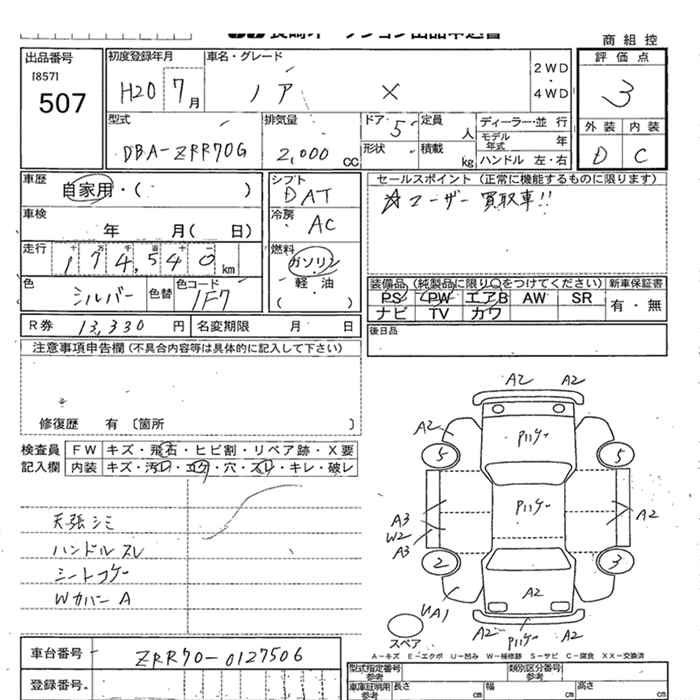 商 組 控
出品番号
[857]
507
初度登録年月
H20 7月
車名・グレード
ノア X
2WD
・
4WD
評 価 点
3
型式
DBA-ZRR70G
排気量
2,000 cc
ドア 5
形状
定員 人
積載 kg
ディーラー・並 行
モデル年式 年
ハンドル 左・右
外 装 内 装
D C
車歴 自家用・( )
車検 年 月( 日)
走行 十 万 千 百 十 一
174,540 km
色 シルバー 色替 色コード 1F7
シフト DAT
冷房 AC
燃料 ガソリン
軽 油
( )
セールスポイント(正常に機能するものに限ります)
☆ユーザー 買取車!!
装備品(純製品に限り○をつけてください) 新車保証書
PS PW エアB AW SR 有・無
ナビ TV カワ
R券 13,330 円 名変期限 月 日
後日品
注意事項申告欄(不具合内容等は具体的に記入して下さい)
修復歴 有〔箇所 〕
検査員 FW キズ・飛石・ヒビ割・リペア跡・X要
記入欄 内装 キズ・汚レ・コゲ・穴・スレ・キレ・破レ
天張シミ
ハンドルスレ
シートコゲ
Wカバー A
A2 A2
A2
Pハゲー
5 5
Pハゲー
A3
W2
A3
A2
2 3
A2
UA1
A2 Pハゲー A2
スペア
A-キズ E-エクボ U-凹み W-補修跡 S-サビ C-腐食 XX-交換済
車台番号 ZRR70-0127506
登録番号
型式指定番号
参考
類別区分番号
参考
車庫証明用
参考
長さ cm 幅 cm 高さ cm